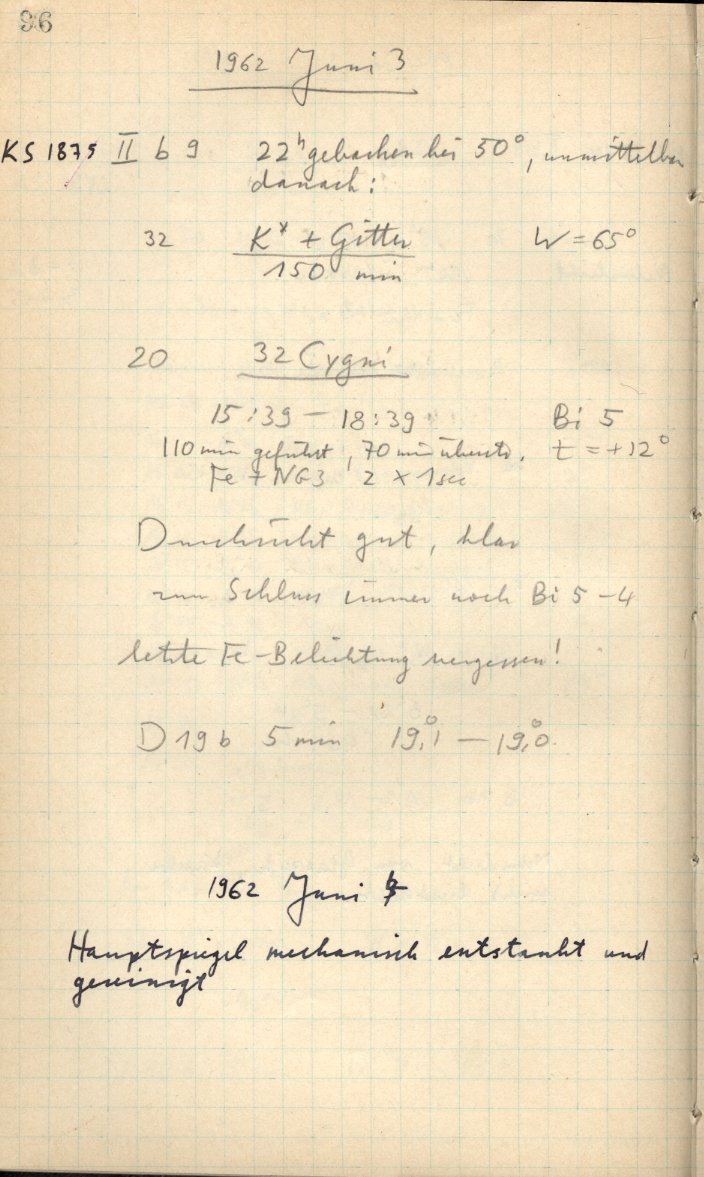 96
1962 Juni 3
KS 1875 II b 9 22h gebacken bei 50°, unmittelbar
danach:
32 K* + Gitter W = 65°
150 min
20 32 Cygni
15:39 – 18:39 Bi 5
110 min geführt, 70 min überstr. t = +12°
Fe + NG3 2 × 1sec
Durchsicht gut, klar
zum Schluss immer noch Bi 5 – 4
letzte Fe-Belichtung vergessen!
D 19 b 5 min 19,°1 – 19,°0
1962 Juni
Hauptspiegel mechanisch entstaubt und
gereinigt